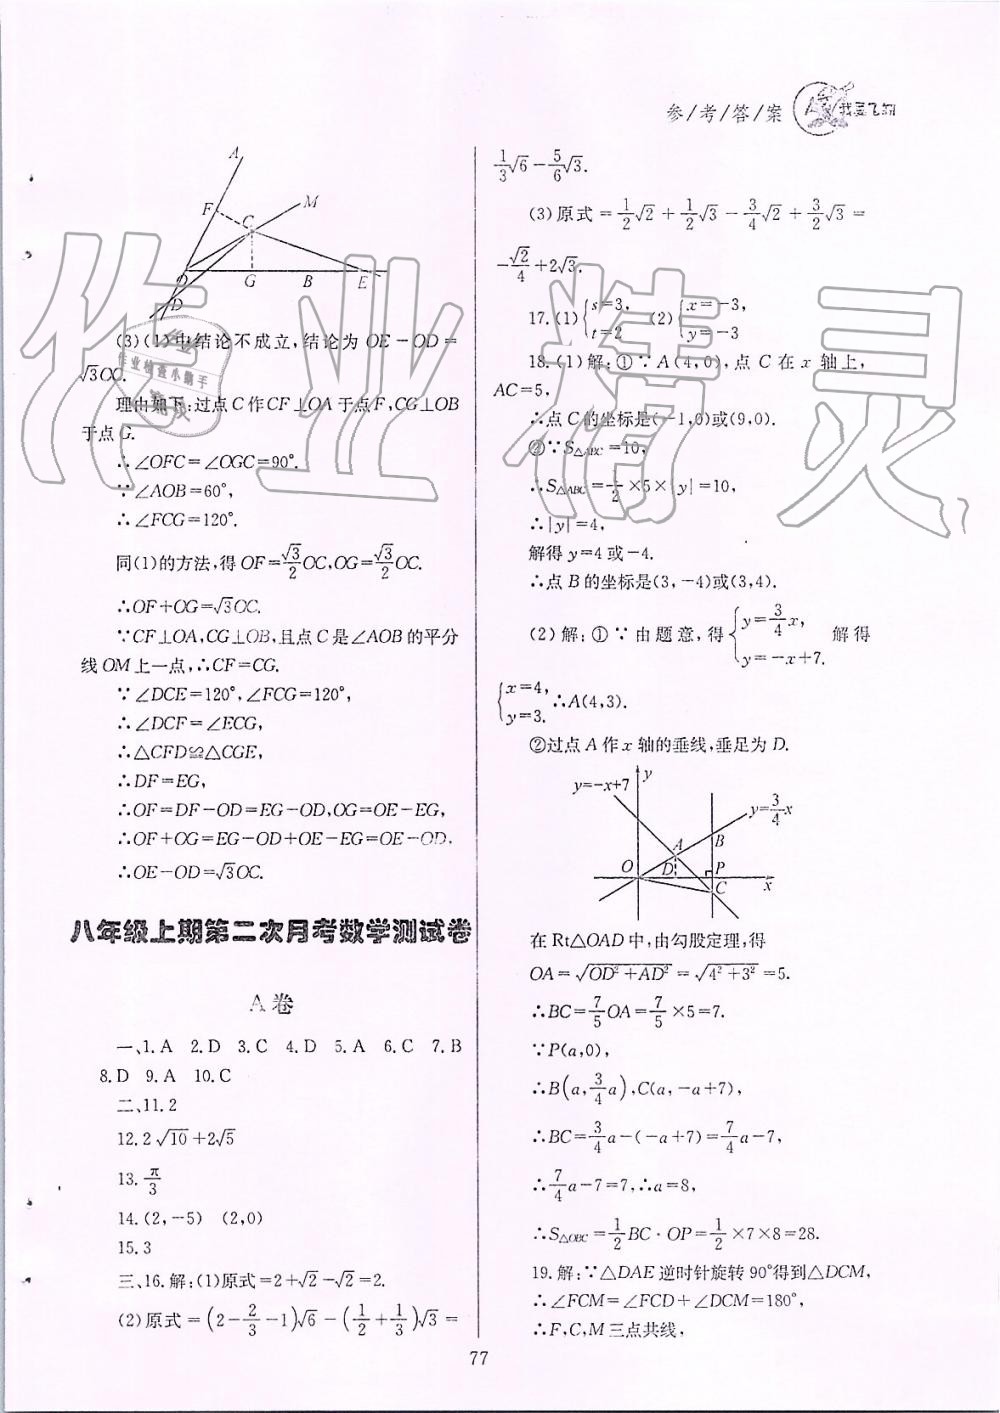 参/考/答/案
A
F
C
M
O
G
B
E
D
(3)(1)中结论不成立,结论为 OE－OD＝
√3OC.
理由如下:过点C作CF⊥OA于点F,CG⊥OB
于点G.
∴∠OFC＝∠OGC＝90°.
∵∠AOB＝60°,
∴∠FCG＝120°.
同(1)的方法,得 OF＝√3/2 OC,OG＝√3/2 OC.
∴OF＋OG＝√3OC.
∵CF⊥OA,CG⊥OB,且点C是∠AOB的平分
线OM上一点,∴CF＝CG.
∵∠DCE＝120°,∠FCG＝120°,
∴∠DCF＝∠ECG,
∴△CFD≌△CGE,
∴DF＝EG,
∴OF＝DF－OD＝EG－OD,OG＝OE－EG,
∴OF＋OG＝EG－OD＋OE－EG＝OE－OD,
∴OE－OD＝√3OC.
八年级上期第二次月考数学测试卷
A卷
一、1.A 2.D 3.C 4.D 5.A 6.C 7.B
8.D 9.A 10.C
二、11.2
12.2√10＋2√5
13.π/3
14.(2,－5) (2,0)
15.3
三、16.解:(1)原式＝2＋√2－√2＝2.
(2)原式＝(2－2/3－1)√6－(1/2＋1/3)√3＝
1/3√6－5/6√3.
(3)原式＝1/2√2＋1/2√3－3/4√2＋3/2√3＝
－√2/4＋2√3.
17.(1){s＝3, t＝2 (2){x＝－3, y＝－3
18.(1)解:①∵A(4,0),点C在x轴上,
AC＝5,
∴点C的坐标是(－1,0)或(9,0).
②∵S△ABC＝10,
∴S△ABC＝1/2×5×|y|＝10,
∴|y|＝4,
解得y＝4或－4.
∴点B的坐标是(3,－4)或(3,4).
(2)解:①∵由题意,得{y＝3/4x, y＝－x＋7. 解得
{x＝4, y＝3. ∴A(4,3).
②过点A作x轴的垂线,垂足为D.
y＝－x＋7
y
y＝3/4x
A
B
O
D
P
C
x
在Rt△OAD中,由勾股定理,得
OA＝√OD²＋AD²＝√4²＋3²＝5.
∴BC＝7/5OA＝7/5×5＝7.
∵P(a,0),
∴B(a,3/4a),C(a,－a＋7),
∴BC＝3/4a－(－a＋7)＝7/4a－7,
∴7/4a－7＝7,∴a＝8,
∴S△OBC＝1/2BC·OP＝1/2×7×8＝28.
19.解:∵△DAE逆时针旋转90°得到△DCM,
∴∠FCM＝∠FCD＋∠DCM＝180°,
∴F,C,M三点共线,
77
作业精灵
作业检查小助手